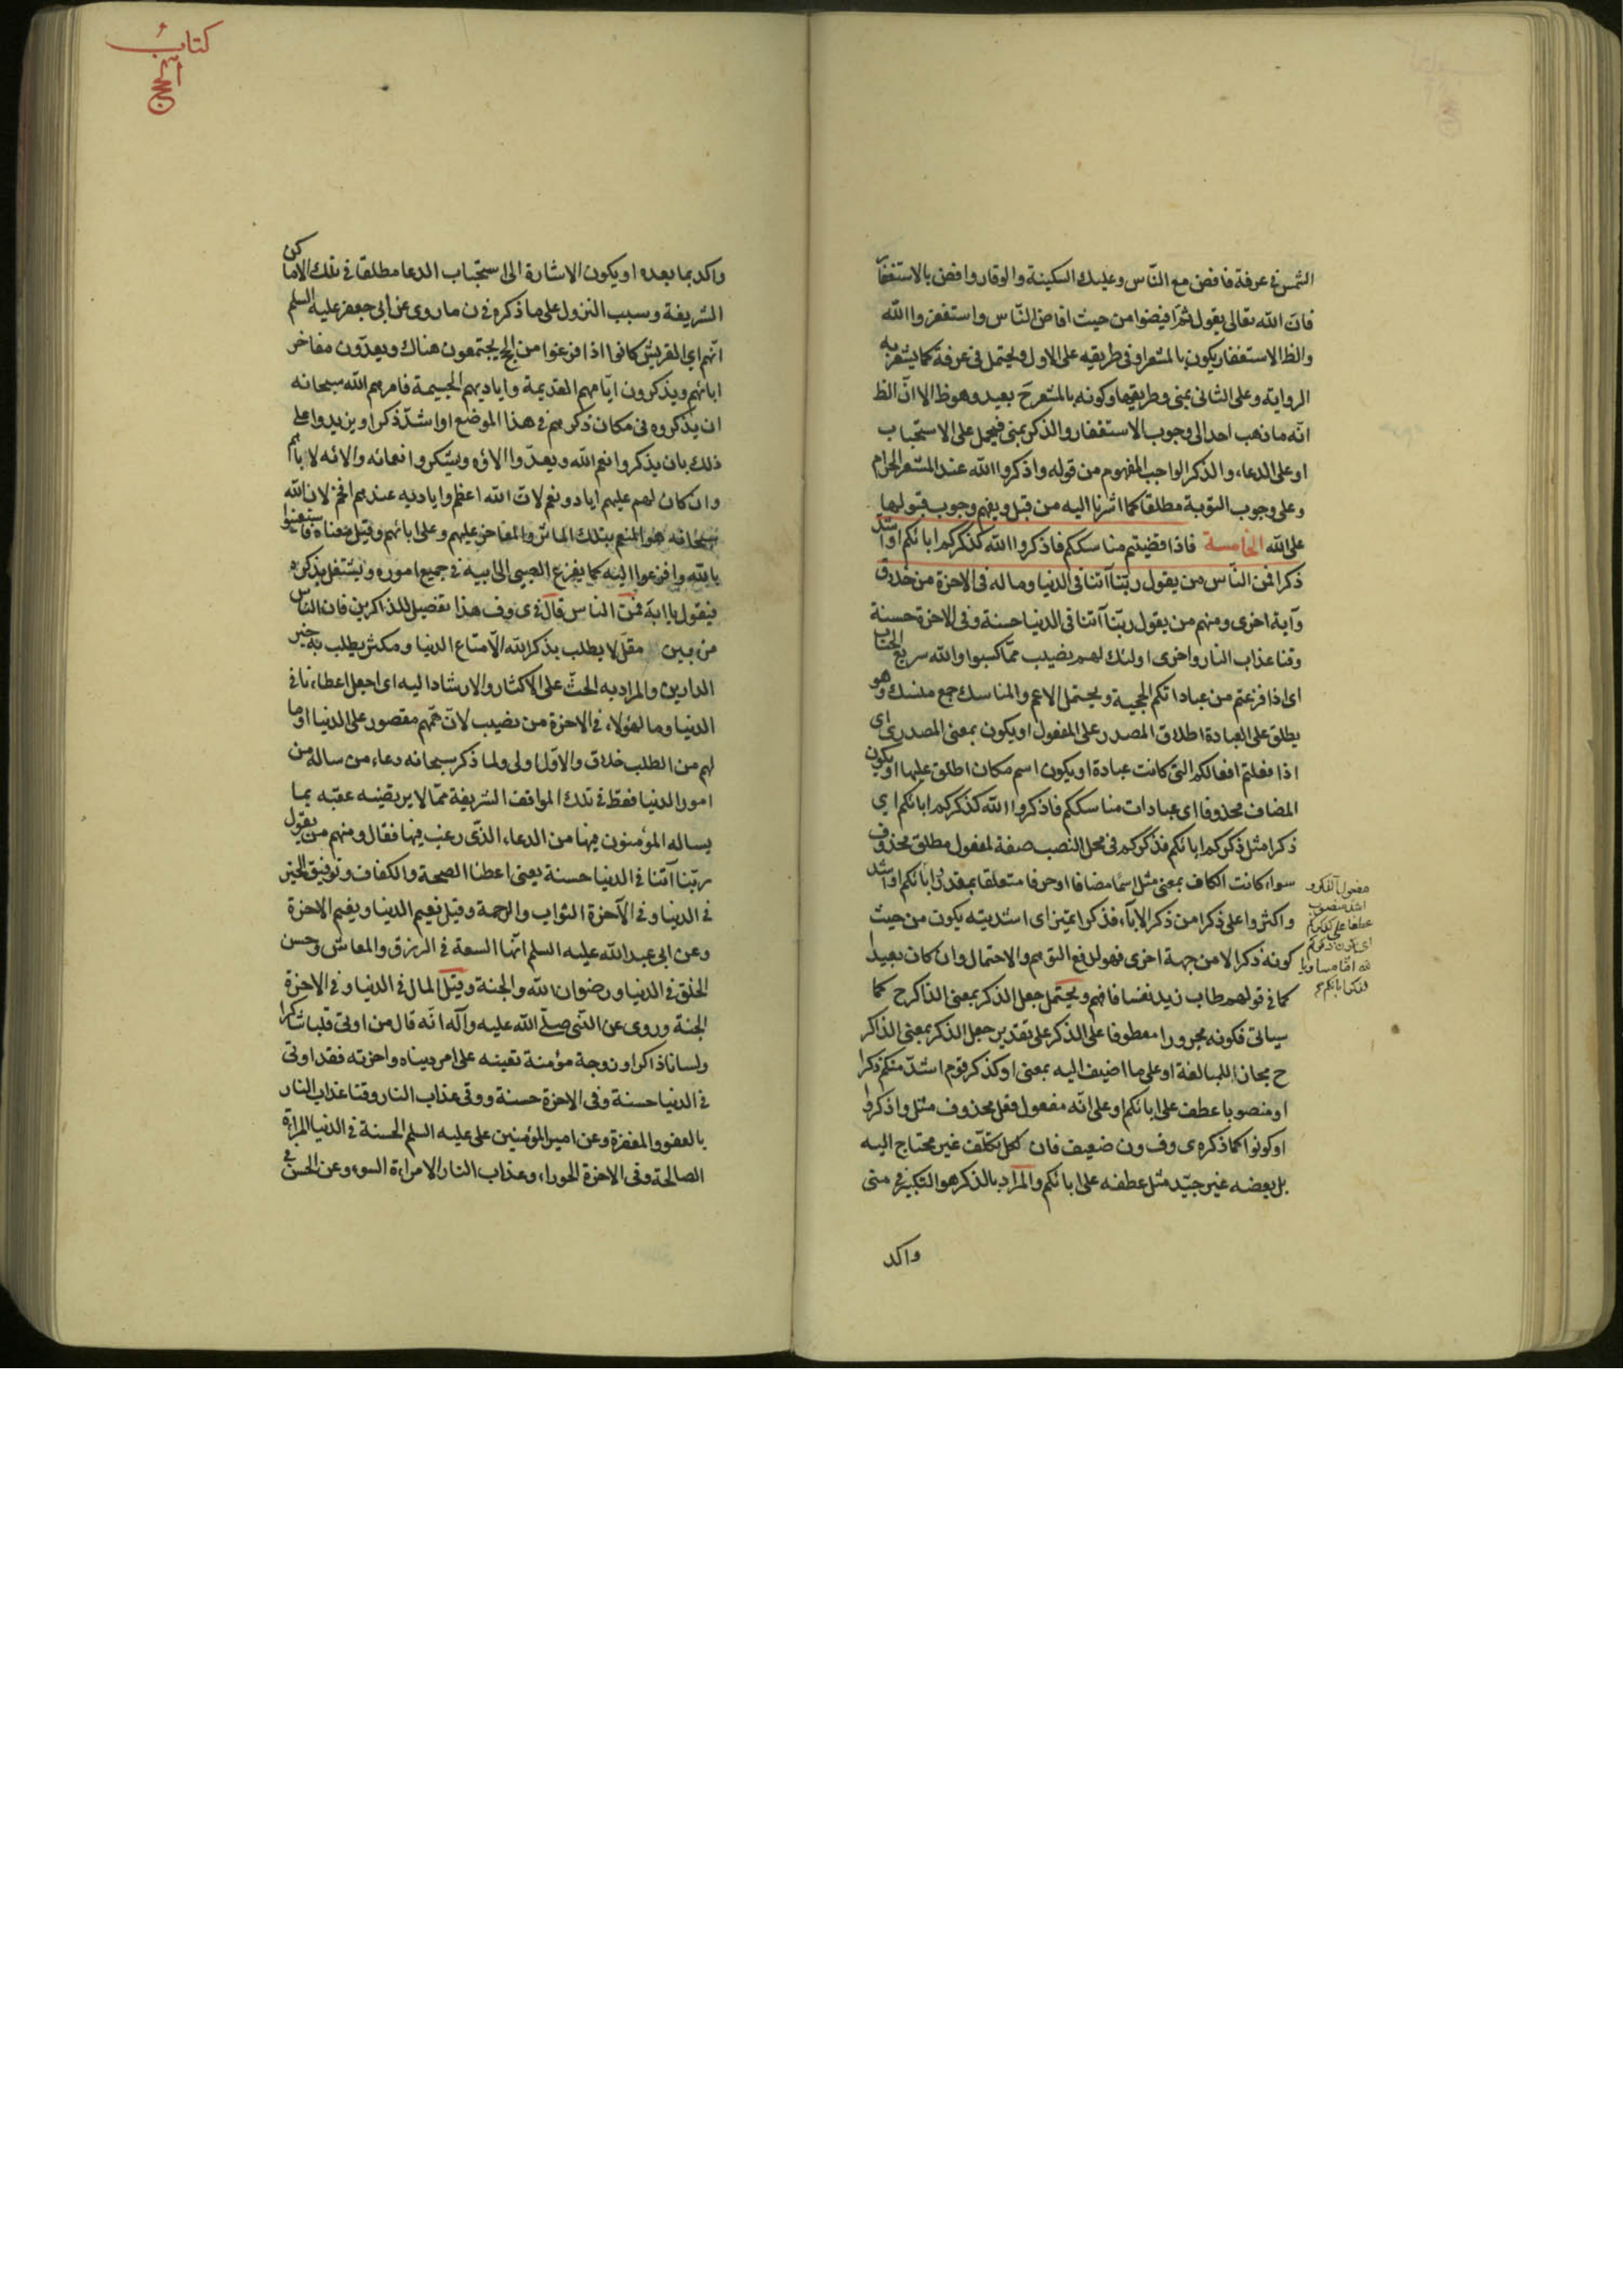 الشمس في عرفة فافض مع النّاس وعليك السكينة والوقار وافض بالاستغفار
فانّ الله تعالى يقول ثمّ افيضوا من حيث افاض النّاس واستغفروا الله
والظ الاستغفار يكون بالمشعر او في طريقيه على الاول ويحتمل في عرفة كما يشعر به
الرواية وعلى الثاني بمنى وطريقها وكونه بالمشعر ح بعيد وهو ظ الا انّ الظ
انّه ما ذهب احد الى وجوب الاستغفار والذكر بمنى فيحمل على الاستحباب
او على الدعاء، والذكر الواجب المفهوم من قوله واذكروا الله عند المشعر الحرام
وعلى وجوب التوبة مطلقا كما اشرنا اليه من قبل ويفهم وجوب قبولها
على الله الخامسة فاذا قضيتم مناسككم فاذكروا الله كذكركم ابائكم او اشدّ
ذكرا فمن النّاس من يقول ربّنا آتنا في الدنيا وما له في الاخرة من خلاق
وآية اخرى ومنهم من يقول ربّنا آتنا في الدنيا حسنة وفي الاخرة حسنة
وقنا عذاب النار واخرى اولئك لهم نصيب ممّا كسبوا والله سريع الحساب
اى اذا فرغتم من عباداتكم الحجية ويحتمل الاعم والمناسك جمع منسك وهو
يطلق على العبادة اطلاق المصدر على المفعول او يكون بمعنى المصدر اى
اذا فعلتم افعالكم التى كانت عبادة او يكون اسم مكان اطلق عليها او يكون
المضاف محذوفا اى عبادات مناسككم فاذكروا الله كذكركم ابائكم اي
ذكرا مثل ذكركم ابائكم فذكركم في محل النصب صفة لمفعول مطلق محذوف
سواء كانت الكاف بمعنى مثل اسما مضافا او حرفا متعلقا بمقدر ابائكم او اشد
واكثر واعلى ذكرا من ذكر الاباء، فذكرا تميز اى اشديته يكون من حيث
كونه ذكرا لا من جهة اخرى فهو لدفع التوهم والاحتمال وان كان بعيدا
كما في قولهم طاب زيد نفسا فافهم ويحتمل جعل الذكر بمعنى الذاكر ح كما
سياتى فكونه مجرورا معطوفا على الذكر على تقدير جعل الذكر بمعنى الذاكر
ح مجاز اللمبالغة او على ما اضيف اليه بمعنى او كذكر قوم اشدّ منكم ذكرا
او منصوبا عطف على ابائكم او على انّه مفعول فعل محذوف مثل واذكروا
او كونوا كما ذكره ى وف ون ضعيف فان كل تكلّف غير محتاج اليه
بل بعضه غير جيّد مثل عطفه على ابائكم والمراد بالذكر هو التكبير في منى
اشد منصوب
عطفا على
واكد
كتاب
الحج
واكد بما بعده او يكون الاشارة الى استحباب الدعا مطلقا في تلك الاماكن
الشريفة وسبب النزول على ما ذكره في ن ما روى عن ابي جعفر عليه السلم
انّهم اي القريش كانوا اذا فرغوا من الحج يجتمعون هناك ويعدّون مفاخر
ابائهم ويذكرون ايّامهم القديمة واياديهم الجسيمة فامرهم الله سبحانه
ان يذكروه في مكان ذكرهم في هذا الموضع او اشدّ ذكرا ويزيدوا على
ذلك بان يذكروا نعم الله ويعدّوا الاؤه ويشكروا نعمائه والائه لا باهم
وان كان لهم عليهم اياد ونعم لانّ الله اعظم واياديه عندهم افخر لان الله
سبحانه هو المنعم بتلك الماثر والمفاخر عليهم وعلى ابائهم وقيل معناه فاستعينوا
بالله وافزعوا اليه كما يفزع الصبي الى ابيه في جميع اموره ويشتغل بذكره
فيقول يا ابة فمن الناس قال في ى وف هذا تفصيل للذاكرين فان الناس
من بين مقلّ لا يطلب بذكر الله الّا متاع الدنيا ومكثر يطلب به خير
الدارين والمراد به الحثّ على الاكثار والارشاد اليه اى اجعل اعطاءنا في
الدنيا وما لهؤلاء، في الاخرة من نصيب لانّ همّهم مقصور على الدنيا او ما
لهم من الطلب خلاق والاوّل اولى ولما ذكر سبحانه دعاء من ساله من
امور الدنيا فقط في تلك المواقف الشريفة ممّا لا يرتضيه عقبه بما
يساله المؤمنون فيها من الدعاء، الذّى رغب فيها فقال ومنهم من يقول
ربّنا آتنا في الدنيا حسنة يعنى اعطنا الصحة والكفاف وتوفيق الخير
في الدنيا وفي الآخرة الثواب والرحمة وقيل نعيم الدنيا ونعيم الاخرة
وعن ابى عبد الله عليه السلم انّها السعة في الرزق والمعاش وحسن
الخلق في الدنيا ورضوان الله والجنة وقيل المال في الدنيا وفي الاخرة
الجنة وروى عن النّبي صلّى الله عليه وآله انّه قال من اوتى قلبا شاكرا
ولسانا ذاكرا وزوجة مؤمنة تعينه على امر دنياه واخرته فقد اوتى
في الدنيا حسنة وفي الاخرة حسنة ووقى عذاب النار وقنا عذاب النار
بالعفو والمغفرة وعن امير المؤمنين على عليه السلم الحسنة في الدنيا المراة
الصالحة وفي الاخرة الحوراء، وعذاب النار الامراءة السوء وعن الحسن في